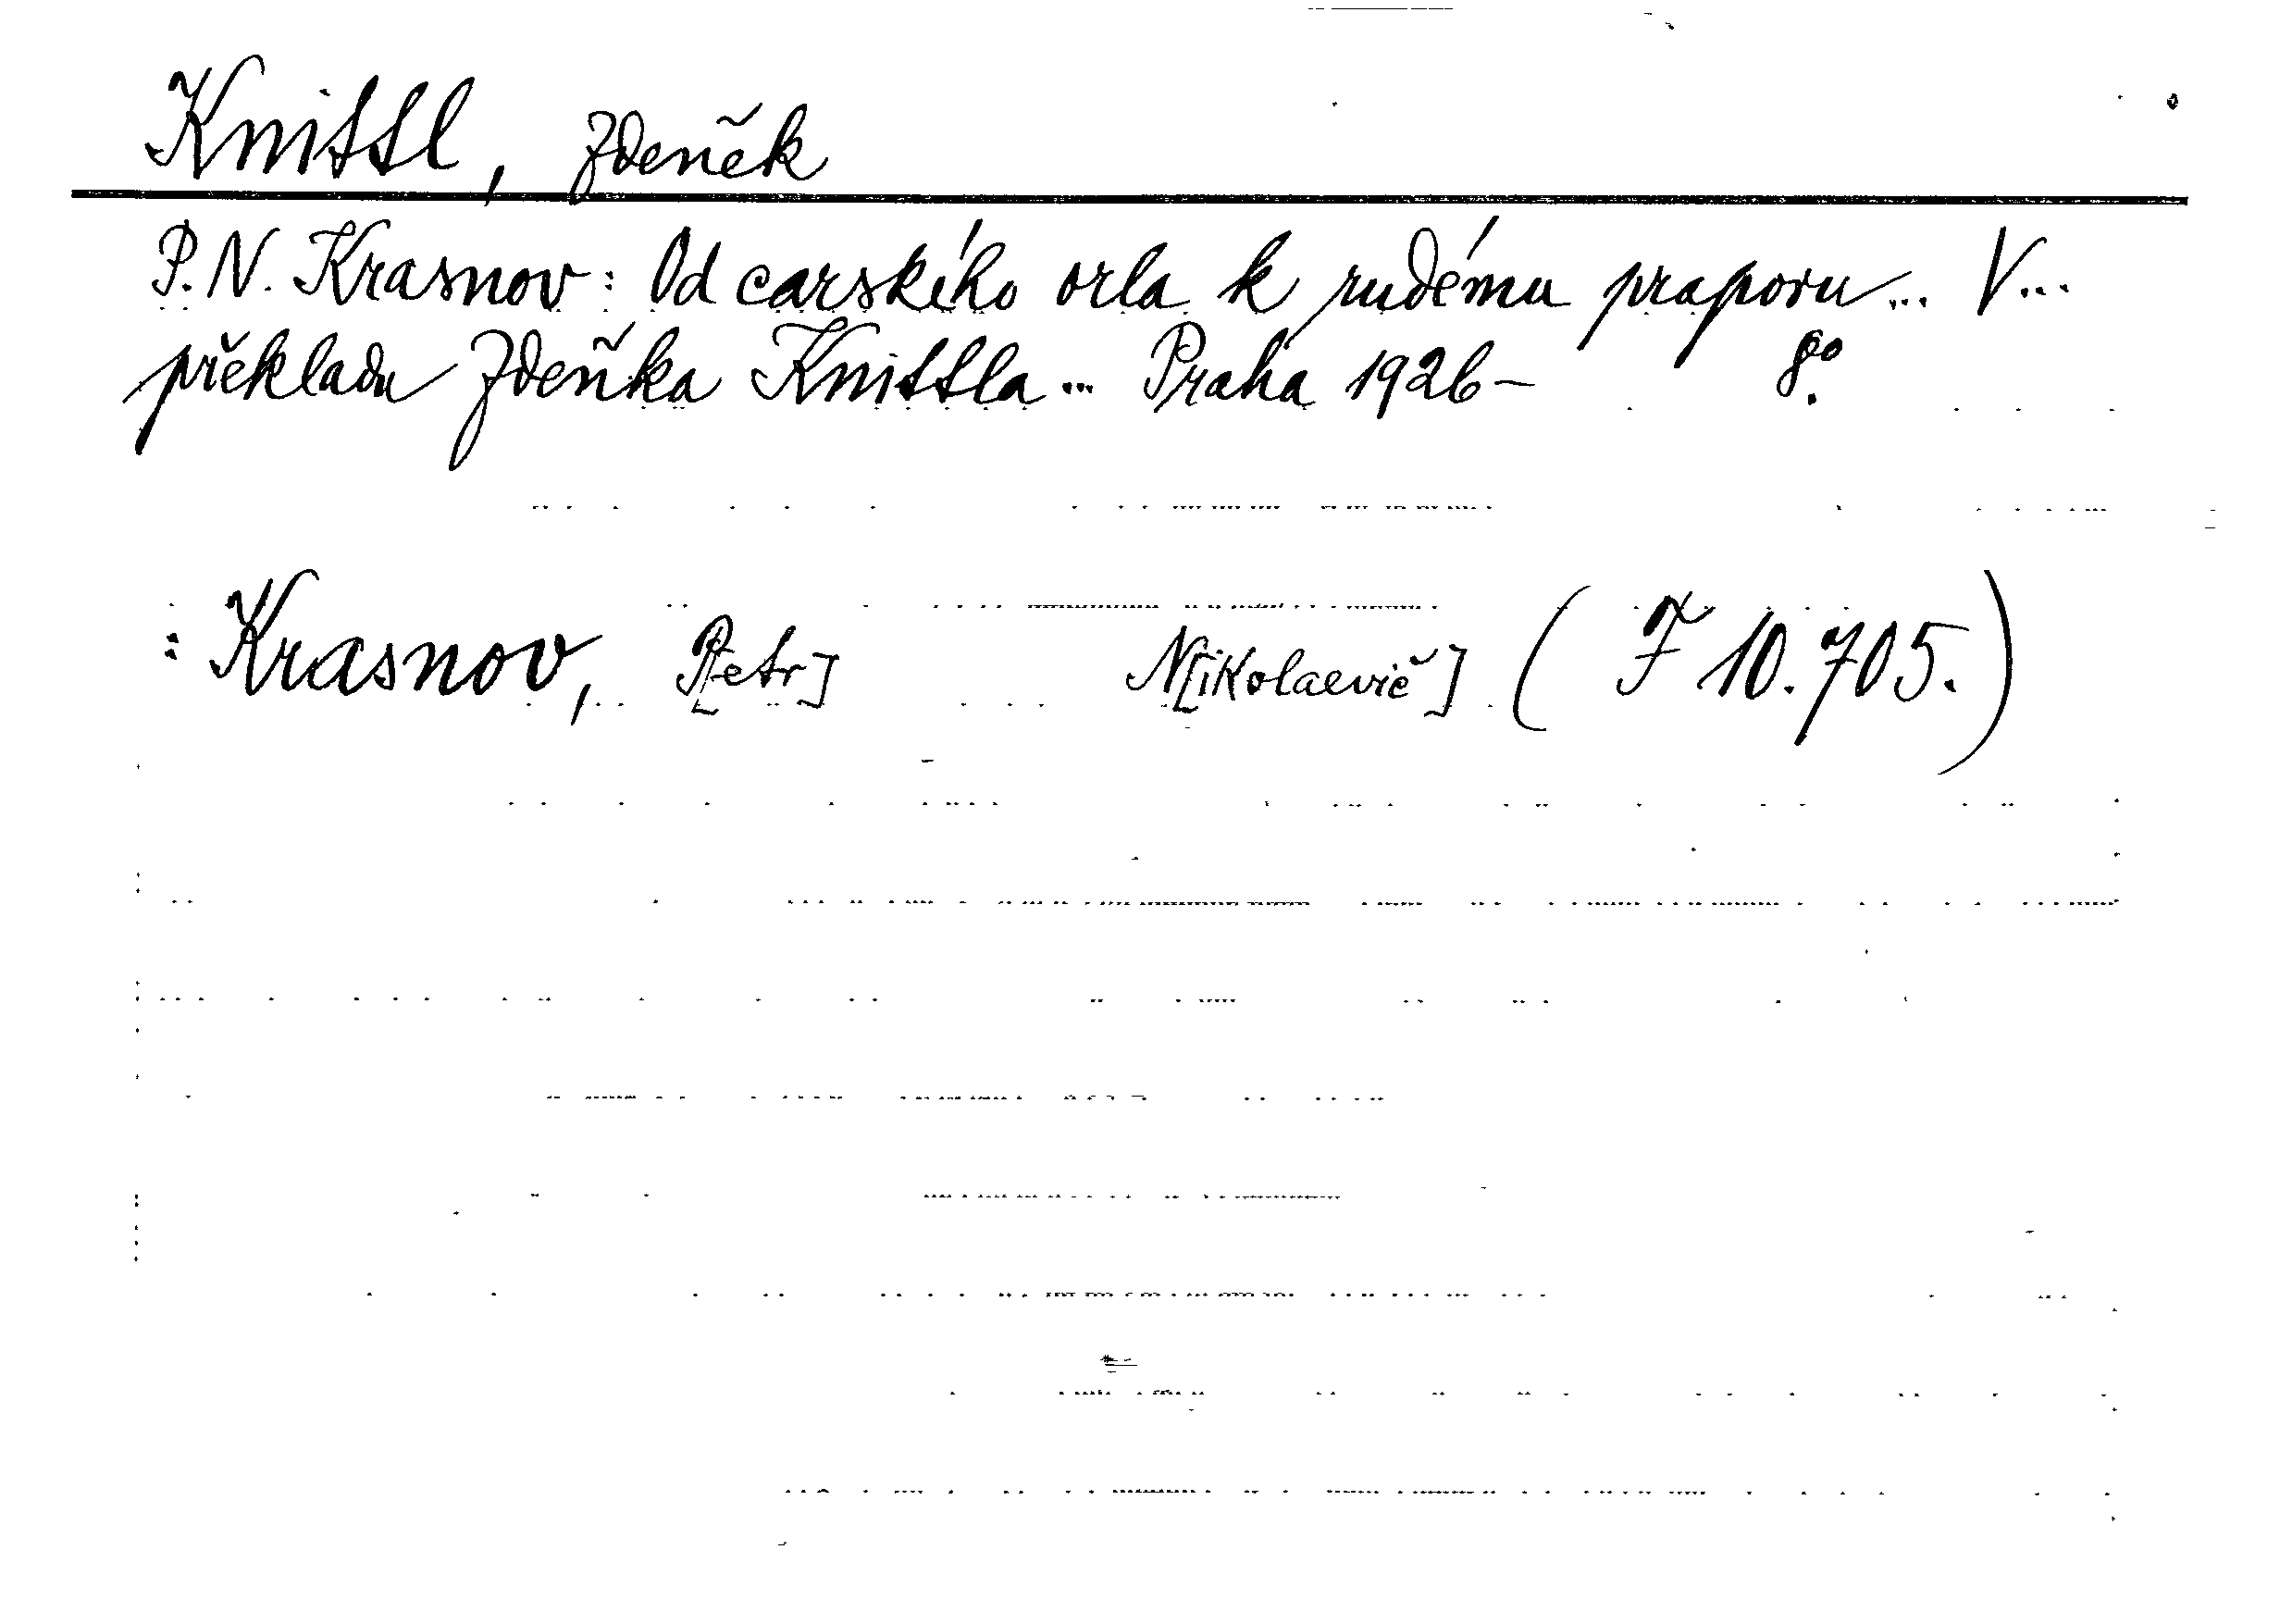 Knittl, Zdeněk
P. N. Krasnov: Od carského orla k rudému praporu... V...
překladu Zdeňka Knittla... Praha 1926- 8°.
: Krasnov, P[etr] N[ikolaevič] (F 10.705.)